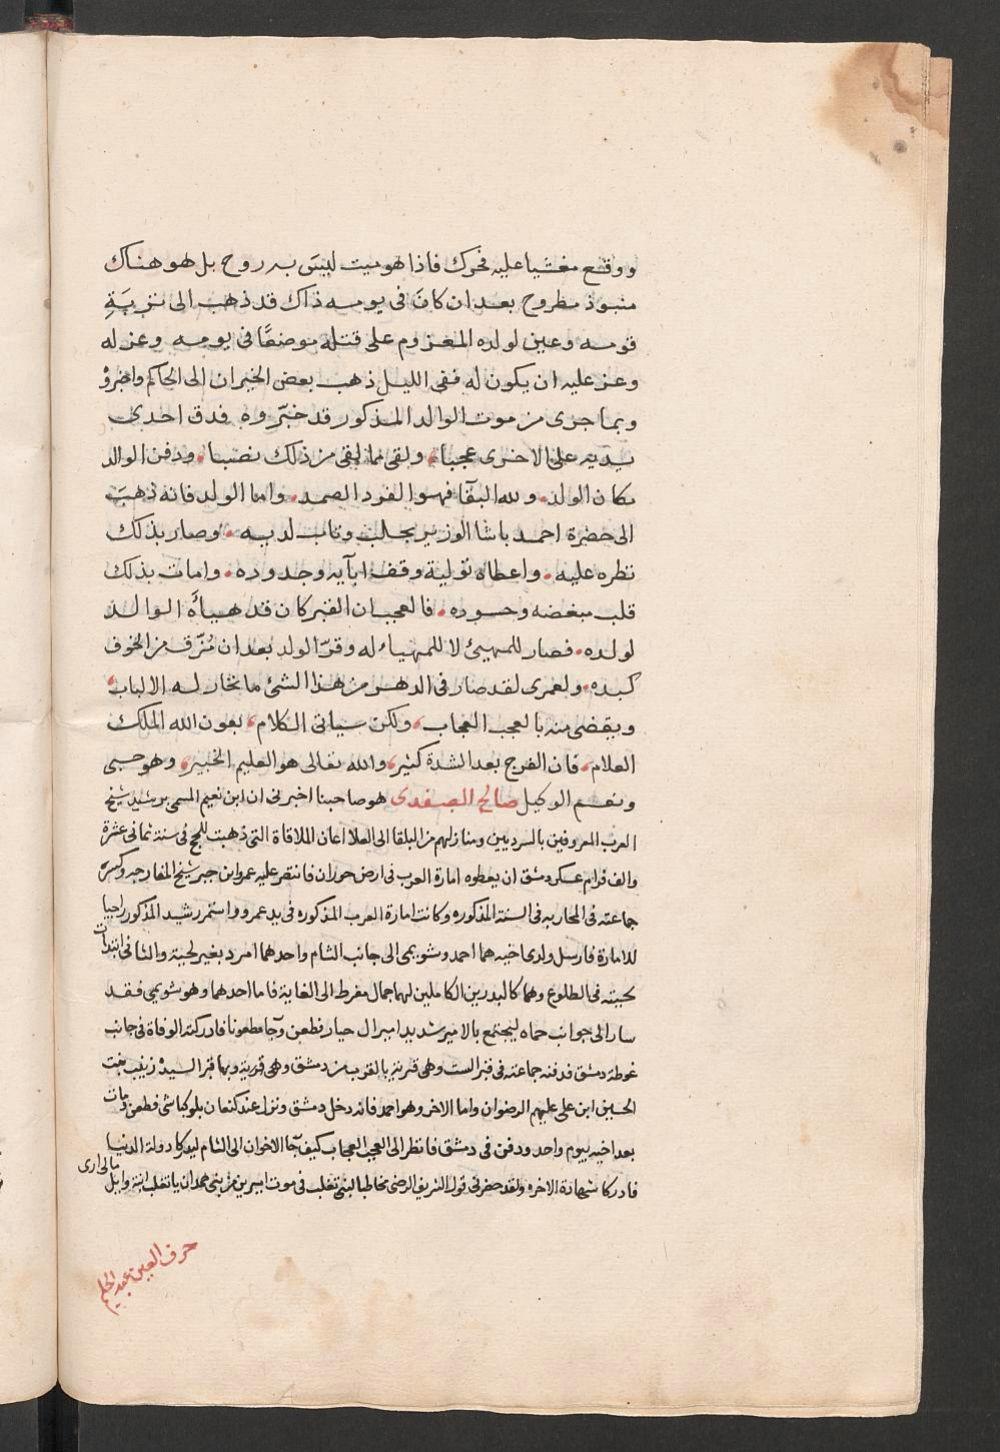 ووقع مغشيا عليه فحرك فاذا هو ميت ليس به روح بل هو هناك
منبوذ مطروح بعد ان كان في يومه ذاك قد ذهب الى تربة
قومه وعين لولده المعزوم على قتله موضعًا في يومه وعز له
وعز عليه ان يكون له ففى الليل ذهب بعض الخيران الى الحاكم واخبروْ
وبما جرى من موت الوالد المذكور قد خبّروه فدق احدى
يديه على الاخرى عجبا، ولقى مما لقى من ذلك نصبا، ودفن الوالد
مكان الولد، ولله البقآ فهو الفرد الصمد، واما الولد فانه ذهب
الى حضرة احمد باشا الوزير بحلب وتاب لديه، وصار بذلك
نظره عليه، واعطاه تولية وقف ابآيه وجدوده، وامات بذلك
قلب مبغضه وحسوده، فالعجب ان القبر كان قد هيأه الوالد
لولده، فصار للمهيئ لا للمهياء له وقرّ الولد بعد ان مُزّق من الخوف
كبده، ولعمرى لقد صار فى الدهر من هذا الشئ ما تحار له الالباب،
ويقضى منه بالعجب العجاب، ولكن سياتى الكلام، بعون الله الملك
العلام، فان الفرج بعد الشدة كثير، والله تعالى هو العليم الخبير، وهو حسبى
ونعم الوكيل صالح الصفدى هو صاحبنا اخبرنى ان ابن نعيم المسمى برشيد شيخ
العرب المعروفين بالسرديين ومنازلهم من البلقا الى العلا اعان الملاقاة التى ذهبت للحج فى سنة ثمانى عشرة
والف فرام عسكر دمشق ان يعطوه امارة العرب فى ارض حوران فانتصر عليه عمرو ابن جبر شيخ المفارجه وكسره
جماعته فى المحاربه فى السنة المذكوره وكانت امارة العرب المذكوره فى يد عمرو واستمر رشيد المذكور راجيا
للامارة فارسل ولدى اخيه هما احمد وشويمى الى جانب الشام واحدهما امرد بغير لحية والثانى ابتدات
لحيته فى الطلوع وهما كالبدرين الكاملين لهما جمال مفرط الى الغاية فاما احدهما وهو شويمى فقد
سار الى جوانب حماه ليجتمع بالامير شديد امير ال حيار فطعن وجآ مطعونا فادركته الوفاة فى جانب
غوطة دمشق فدفنه جماعته فى قبر الست وهى قرية بالقرب من دمشق وهى قرية وبها قبر السيدْ زينب بنت
الحسين ابن على عليهم الرضوان واما الاخر وهو احمد فانه دخل دمشق ونزل عند كنعان بلوكباشى فطعن ومات
بعد اخيه بيوم واحد ودفن فى دمشق فانظر الى العجب العجاب كيف جآ الاخوان الى الشام ليدركا دولة الدنيا
فادركا شهادة الاخره ولقد حضرنى قول الشريف الرضى مخاطبا لبنى تغلب فى موت اميرين من بنى حمدان يا تغلب ابنة وايل مالى ارى
حرف العين عبد الحليم